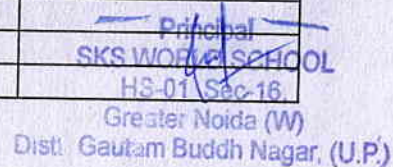 Principal
SKS WORLD SCHOOL
HS-01 Sec-16,
Greater Noida (W)
Distt. Gautam Buddh Nagar, (U.P.)